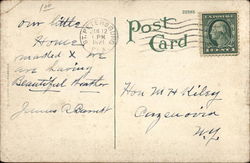 our little
Home
marked X we
are having
Beautiful Weather
James R Barrett
PETERSBURG
1 PM
1921
POST CARD
Hon M H Kilry
Cazenovia
N.Y.